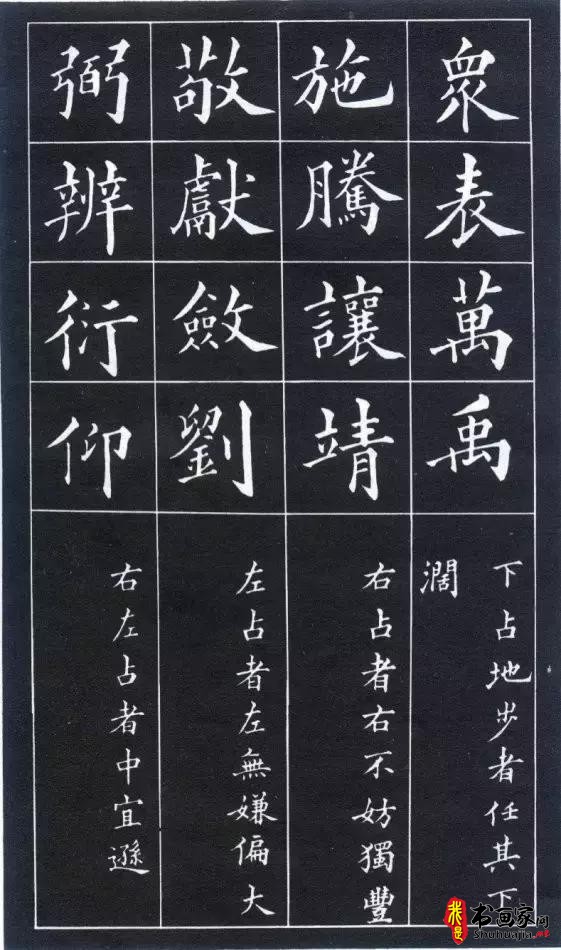 衆表萬禹
下占地步者任其下
濶
施騰讓靖
右占者右不妨獨豐
敬獻斂劉
左占者左無嫌偏大
弼辨衍仰
右左占者中宜遜
我是书画家网
Shuhuajia.net